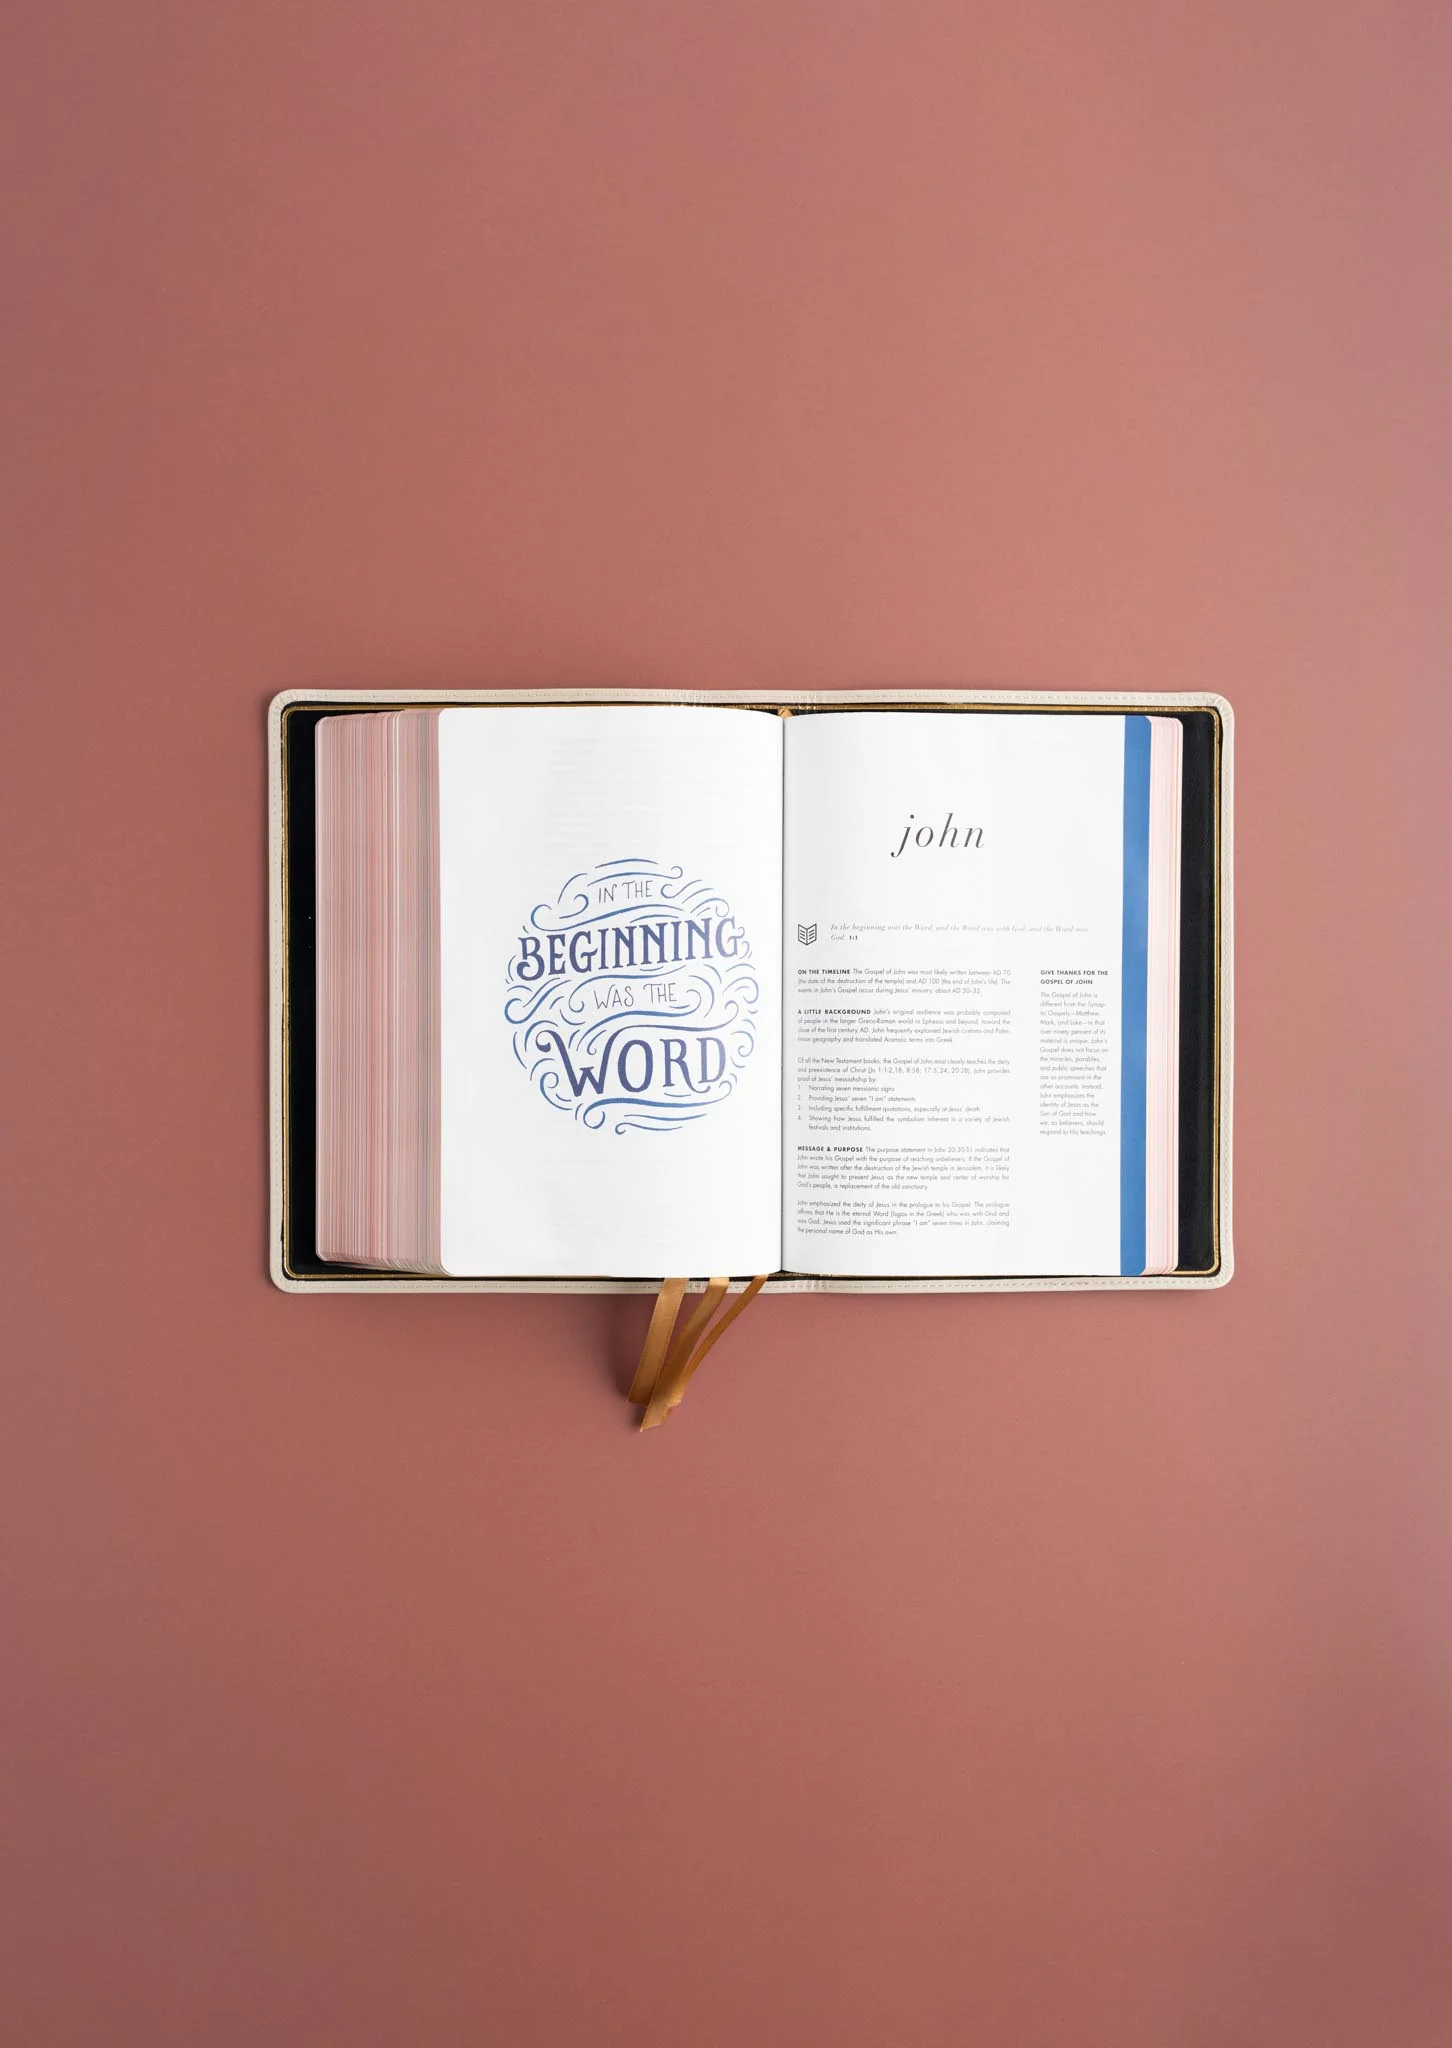 IN THE
BEGINNING
WAS THE
WORD
john
In the beginning was the Word, and the Word was with God, and the Word was
God. 1:1
ON THE TIMELINE The Gospel of John was most likely written between AD 70
(the date of the destruction of the temple) and AD 100 (the end of John's life). The
events in John's Gospel occur during Jesus' ministry, about AD 30–33.
A LITTLE BACKGROUND John's original audience was probably composed
of people in the larger Greco-Roman world in Ephesus and beyond, toward the
close of the first century AD. John frequently explained Jewish customs and Pales-
tinian geography and translated Aramaic terms into Greek.
Of all the New Testament books, the Gospel of John most clearly teaches the deity
and preexistence of Christ (Jn 1:1-2,18; 8:58; 17:5, 24; 20:28). John provides
proof of Jesus' messiahship by:
1. Narrating seven messianic signs
2. Providing Jesus' seven "I am" statements
3. Including specific fulfillment quotations, especially at Jesus' death
4. Showing how Jesus fulfilled the symbolism inherent in a variety of Jewish
festivals and institutions.
MESSAGE & PURPOSE The purpose statement in John 20:30-31 indicates that
John wrote his Gospel with the purpose of reaching unbelievers. If the Gospel of
John was written after the destruction of the Jewish temple in Jerusalem, it is likely
that John sought to present Jesus as the new temple and center of worship for
God's people, a replacement of the old sanctuary.
John emphasized the deity of Jesus in the prologue to his Gospel. The prologue
affirms that He is the eternal Word (logos in the Greek) who was with God and
was God. Jesus used the significant phrase "I am" seven times in John, claiming
the personal name of God as His own.
GIVE THANKS FOR THE
GOSPEL OF JOHN
The Gospel of John is
different from the Synop-
tic Gospels—Matthew,
Mark, and Luke—in that
over ninety percent of its
material is unique. John's
Gospel does not focus on
the miracles, parables,
and public speeches that
are so prominent in the
other accounts. Instead,
John emphasizes the
identity of Jesus as the
Son of God and how
we, as believers, should
respond to His teachings.